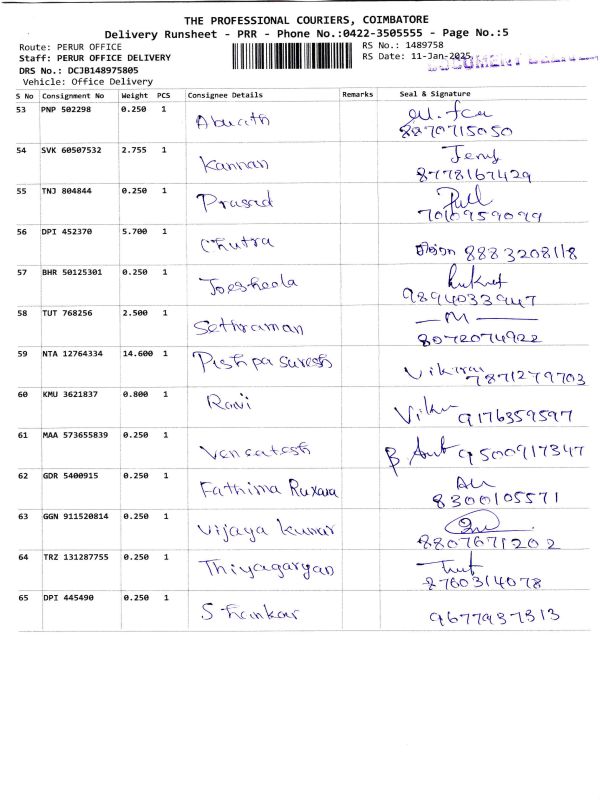 THE PROFESSIONAL COURIERS, COIMBATORE
Delivery Runsheet - PRR - Phone No.:0422-3505555 - Page No.:5
Route: PERUR OFFICE
RS No.: 1489758
Staff: PERUR OFFICE DELIVERY
RS Date: 11-Jan-2025
DRS No.: DCJB148975805
Vehicle: Office Delivery
S No Consignment No Weight PCS Consignee Details Remarks Seal & Signature
53 PNP 502298 0.250 1
8870715050
54 SVK 60507532 2.755 1 Kannan Jeny
8778167429
55 TNJ 804844 0.250 1 Prasad
7010959099
56 DPI 452370 5.700 1 Chutra 8883208118
57 BHR 50125301 0.250 1
9894033947
58 TUT 768256 2.500 1 Sethraman M
8072074922
59 NTA 12764334 14.600 1 Pushpa Suresh
7871279703
60 KMU 3621837 0.800 1 Ravi 9176359597
61 MAA 573655839 0.250 1 Vencatesh 9500917347
62 GDR 5400915 0.250 1 Fathima Ruxara
8300105571
63 GGN 911520814 0.250 1 Vijaya Kumar
8807671202
64 TRZ 131287755 0.250 1 Thiyagaryan
8760314078
65 DPI 445490 0.250 1 Shankar 9677937313